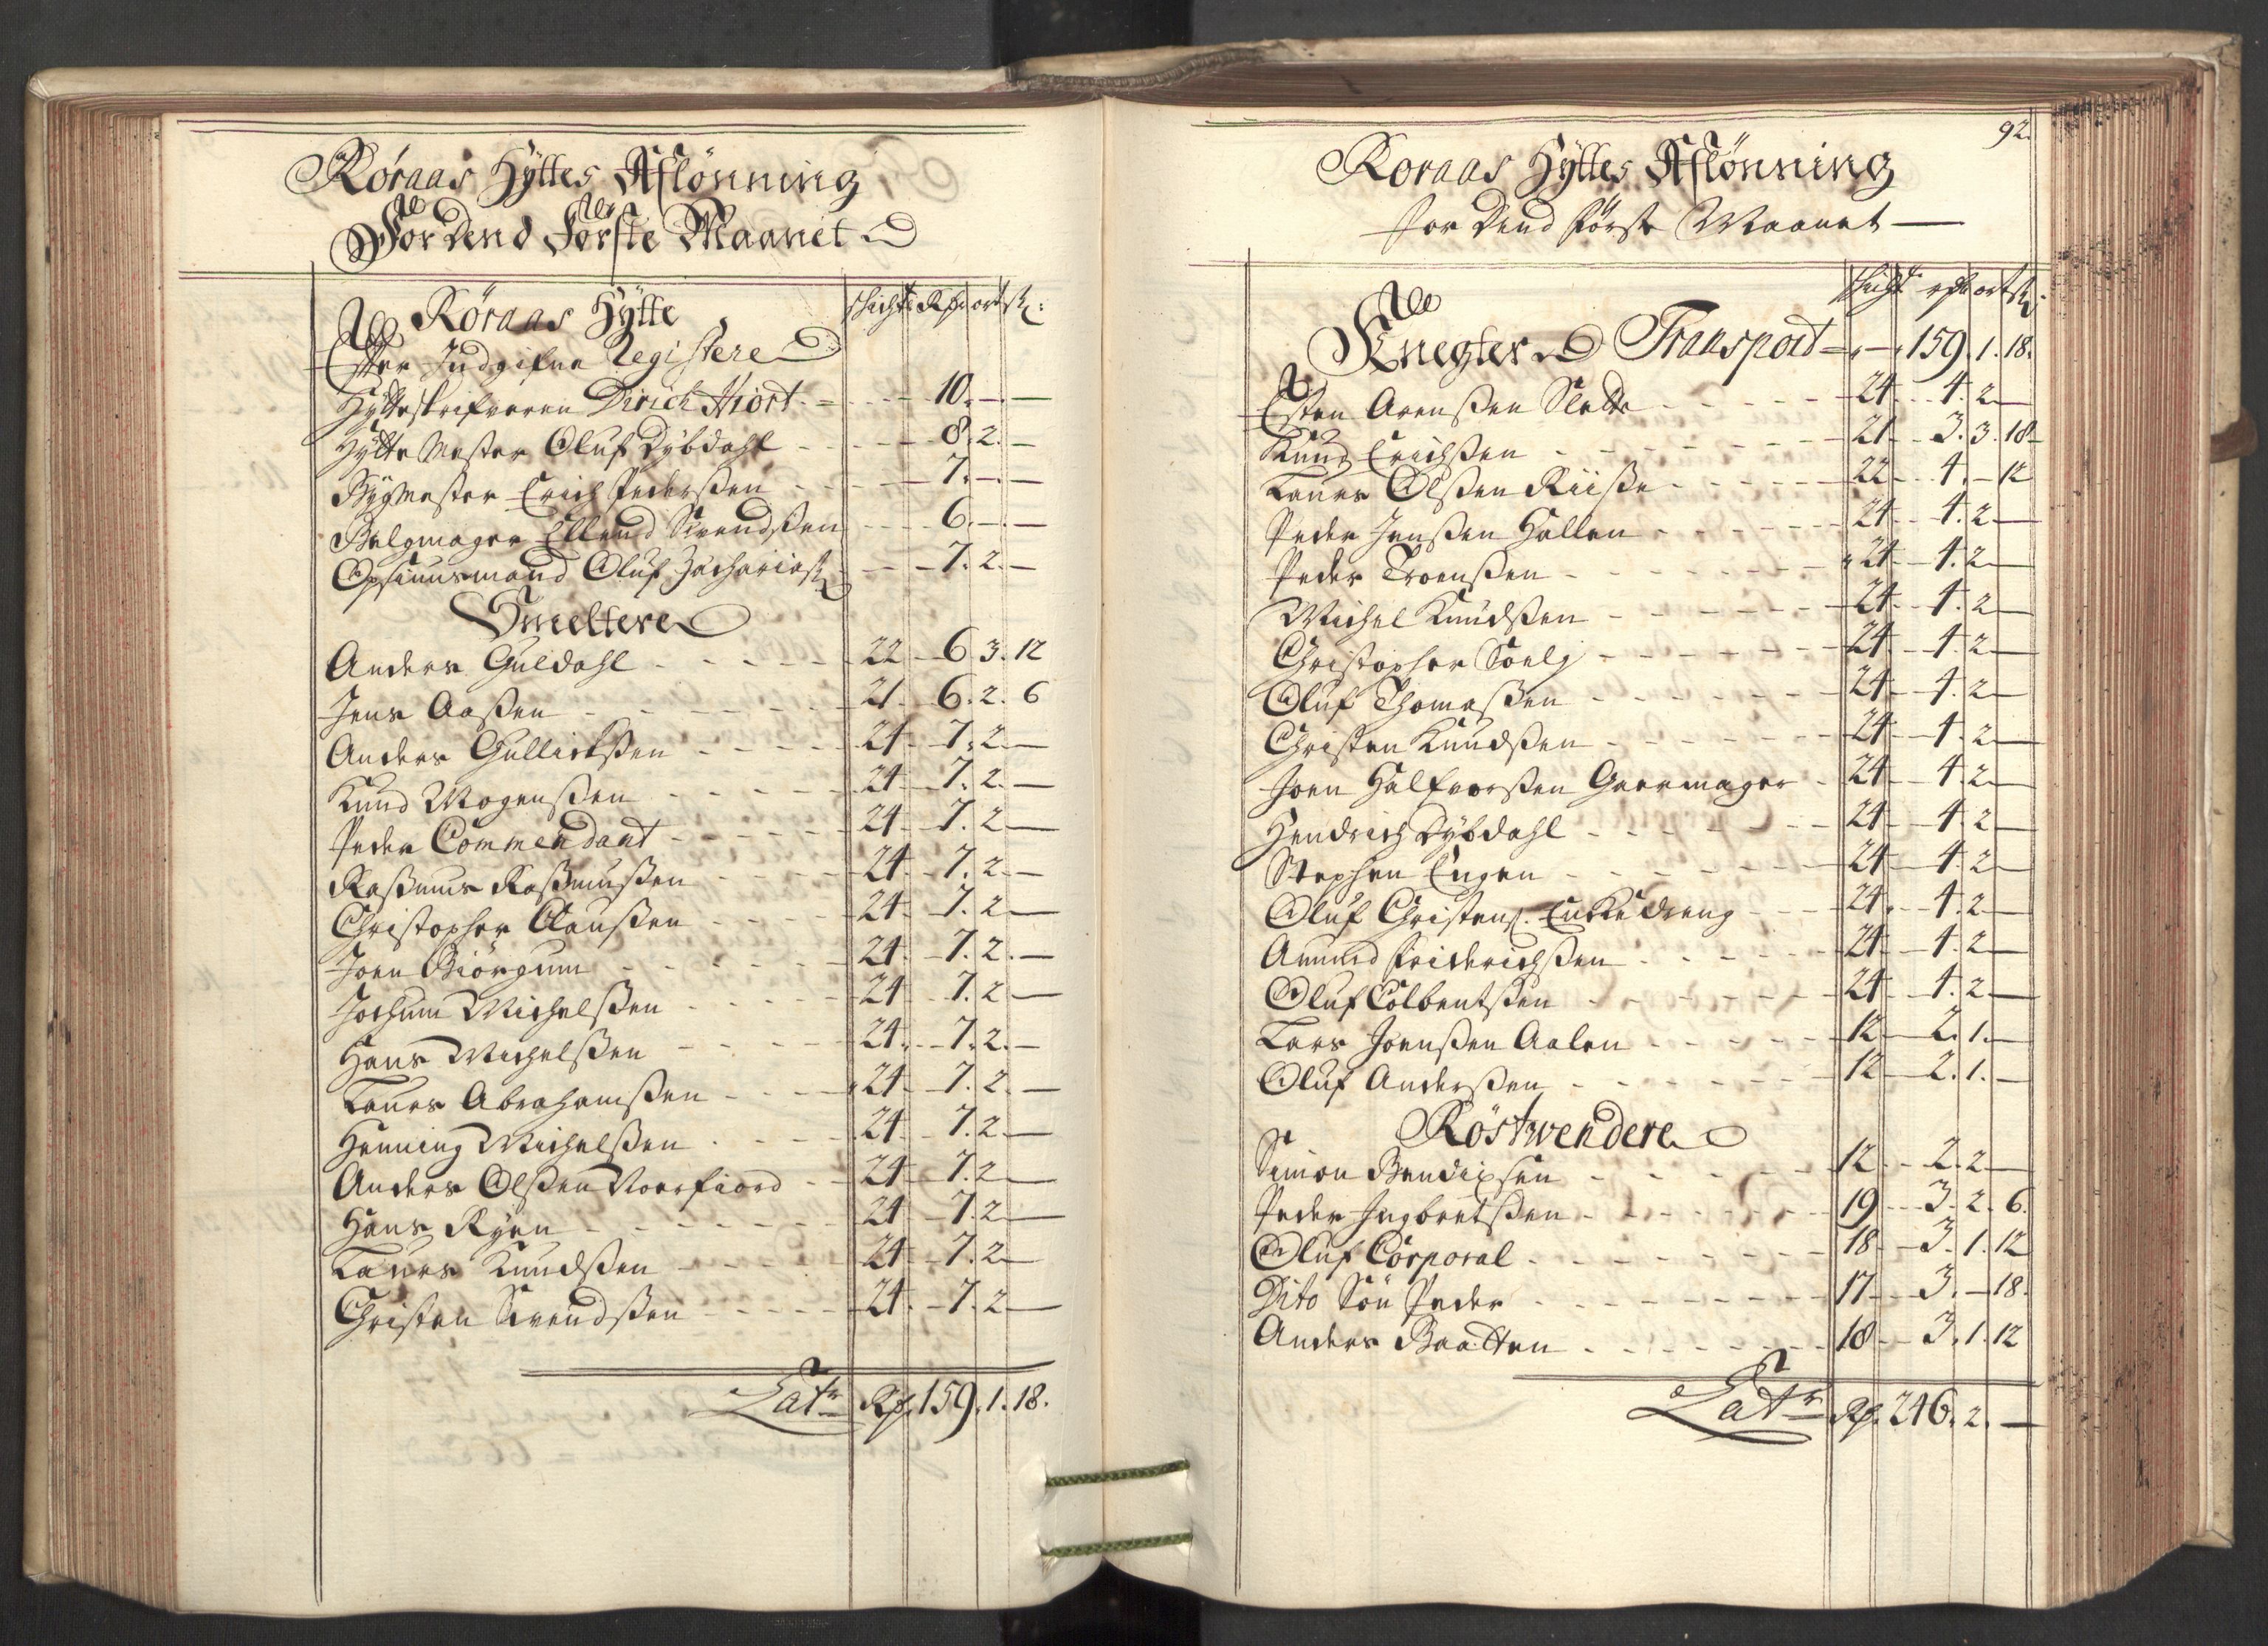 Røraas Hyttes Aflönning
For Dend Förste Maanet
Røraas Hytte
schicht Rdr ort sk:
Efter Indgifne Registere
Hytteskrifveren Dirich Hiort 10. — —
Hytte Mester Oluf Dybdahl 8. 2. —
Bygmester Erich Pedersen 7. — —
Belgmager Ellend Svendsen 6. — —
Opsiunsmand Oluf Zachariaß: 7. 2. —
Smeltere
Anders Guldahl 22 6. 3. 12
Jens Aaßen 21 6. 2. 6
Anders Gullichßen 24 7. 2. —
Knud Mogenßen 24 7. 2. —
Peder Commendant 24 7. 2 —
Raßmus Raßmußen 24 7. 2. —
Christopher Claußen 24 7. 2 —
Joen Giörgum 24 7. 2. —
Jochum Michelßen 24 7. 2 —
Hans Michelßen 24 7. 2. —
Laurs Abrahamßen 24 7. 2. —
Henning Michelßen 24 7. 2 —
Anders Olßen Noerfiord 24 7. 2 —
Hans Ryen 24 7. 2 —
Laurs Knudßen 24 7. 2 —
Christen Svendßen 24 7. 2 —
Latr Rdr 159. 1. 18.
92.
Røraas Hyttes Aflönning
for Dend förste Maanet —
schicht rdr ort sk:
Knegter Transport 159. 1. 18.
Esten Arenßen Slette 24 4. 2 —
Knud Erichßen 21 3. 3. 18
Laurs Olßen Riiße 22 4. — 12
Peder Jenßen Hallen 24 4. 2 —
Peder Troenßen 24 4. 2 —
Michel Knudßen 24 4. 2 —
Christopher Soelj 24 4. 2 —
Oluf Thomaßen 24 4. 2 —
Christen Knudßen 24 4. 2 —
Joen Halfvorßen Gaermager 24 4. 2 —
Hendrich Dybdahl 24 4. 2 —
Stephen Engen 24 4. 2 —
Oluf Christens. Enkedreng 24 4. 2 —
Amund Friderichßen 24 4. 2 —
Oluf Colbentßen 24 4. 2 —
Lars Joenßen Aalen 12 2. 1. —
Oluf Anderßen 12 2. 1. —
Röstwendere
Simon Bendixsen 12 2. 2 —
Peder Ingbretßen 19 3. 2. 6.
Oluf Corporal 18 3. 1. 12
Dito Sön Peder 17 3. — 18.
Anders Baatten 18 3. 1. 12
Latr Rdr. 246. 2. —